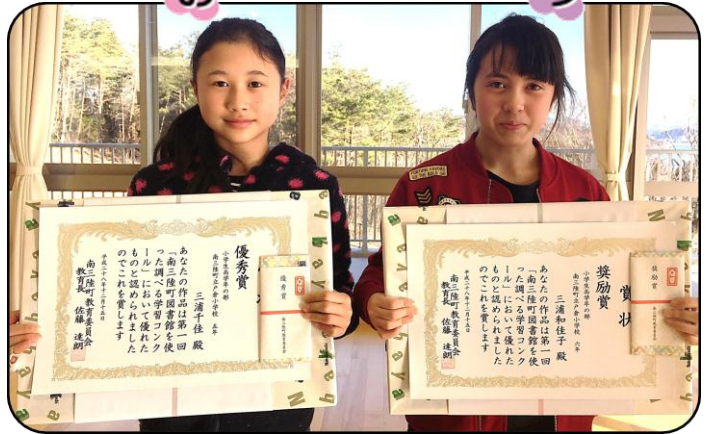 優秀賞
小学生高学年の部
南三陸町立戸倉小学校 五年
三浦千佳 殿
あなたの作品は第一回
「南三陸町図書館を使
った調べる学習コンク
ール」において優れた
ものと認められました
のでこれを賞します
平成二十八年十二月十五日
南三陸町教育委員会
教育長 佐藤 達朗
優秀賞
賞状
奨励賞
小学生高学年の部
南三陸町立戸倉小学校 六年
三浦和佳子 殿
あなたの作品は第一回
「南三陸町図書館を使
った調べる学習コンク
ール」において優れた
ものと認められました
のでこれを賞します
平成二十八年十二月十五日
南三陸町教育委員会
教育長 佐藤 達朗
奨励賞